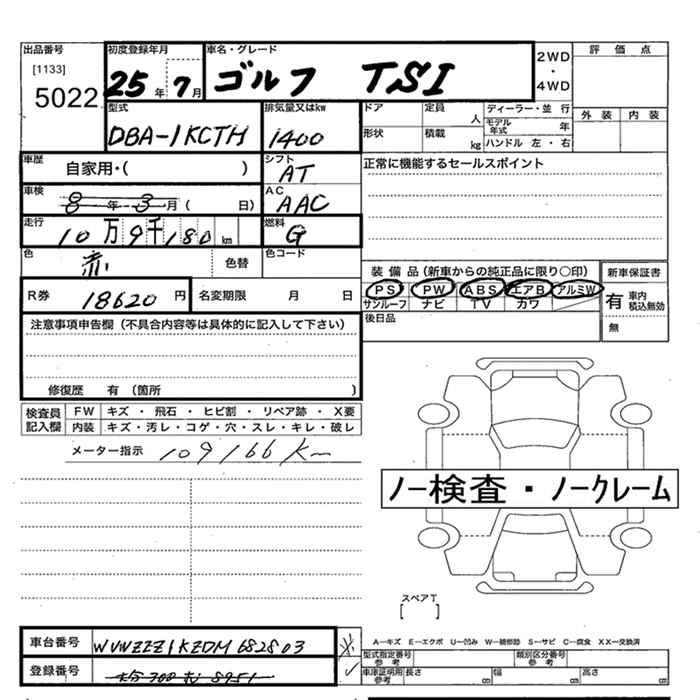 出品番号 初度登録年月 車名・グレード 2WD ・ 4WD 評価点
[1133]
5022 25年 7月 ゴルフ TSI
外装 内装
型式 排気量又はkw ドア 定員 人 ディーラー・並行
DBA-1KCTH 1400 形状 積載 kg モデル年式 年
ハンドル 左・右
車歴 自家用・( ) シフト AT 正常に機能するセールスポイント
車検 8年 3月 ( 日) AC AAC
走行 10万9千180km 燃料 G
色 赤 色替 色コード
装備品 (新車からの純正品に限り○印) 新車保証書
PS PW ABS エアB アルミW 有 車内 税込無効
サンルーフ ナビ TV カワ 無
R券 18620円 名変期限 月 日
後日品
注意事項申告欄 (不具合内容等は具体的に記入して下さい)
修復歴 有 (箇所 )
検査員記入欄 FW キズ ・ 飛石 ・ ヒビ割 ・ リペア跡 ・ X要
内装 キズ・汚レ・コゲ・穴・スレ・キレ・破レ
メーター指示 109166 K
ノー検査・ノークレーム
スペアT
[ ]
車台番号 WVWZZZ1KZDM682803
登録番号
A-キズ E-エクボ U-凹み W-補修跡 S-サビ C-腐食 XX-交換済
型式指定番号 参考 類別区分番号 参考
車庫証明用 参考 長さ cm 幅 cm 高さ cm